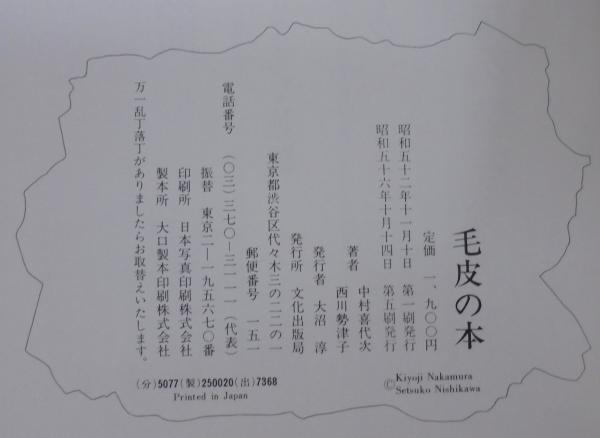 毛皮の本
定価 一、九〇〇円
昭和五十二年十一月十日 第一刷発行
昭和五十六年十月十四日 第五刷発行
著者 中村喜代次
西川勢津子
発行者 大沼 淳
発行所 文化出版局
東京都渋谷区代々木三の二二の一
郵便番号 一五一
電話番号 (〇三)三七〇―三一一一(代表)
振替 東京二―一九五六七〇番
印刷所 日本写真印刷株式会社
製本所 大口製本印刷株式会社
万一乱丁落丁がありましたらお取替えいたします。
©Kiyoji Nakamura
Setsuko Nishikawa
(分)5077(製)250020(出)7368
Printed in Japan